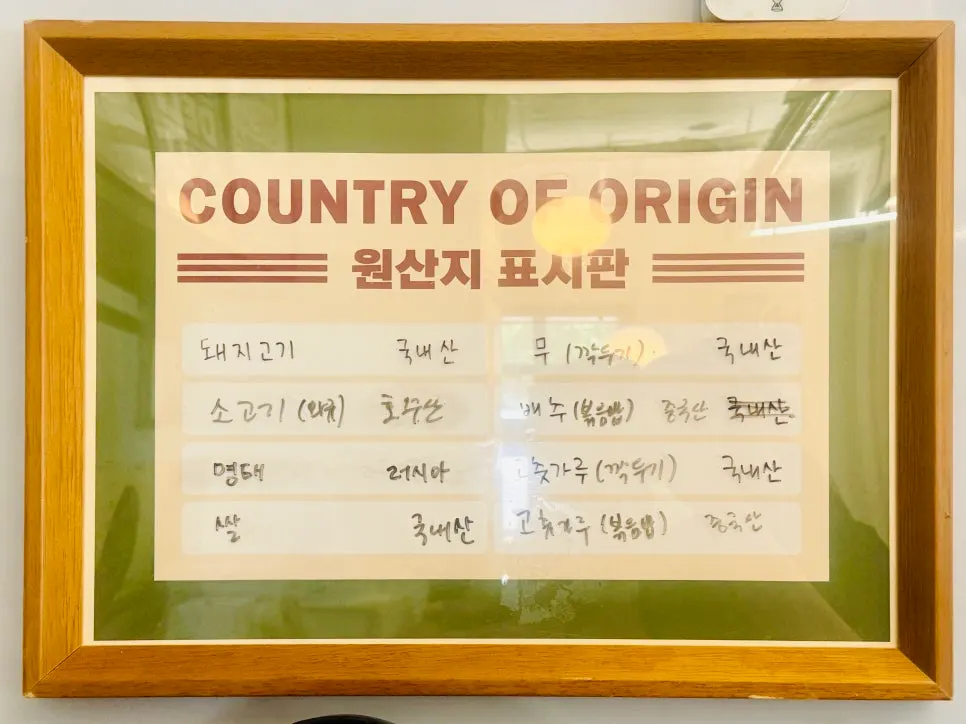 COUNTRY OF ORIGIN
원산지 표시판
돼지고기 국내산
소고기 (와규) 호주산
명태 러시아
쌀 국내산
무 (깍두기) 국내산
배추 (볶음밥) 중국산 국내산
고춧가루 (깍두기) 국내산
고춧가루 (볶음밥) 중국산